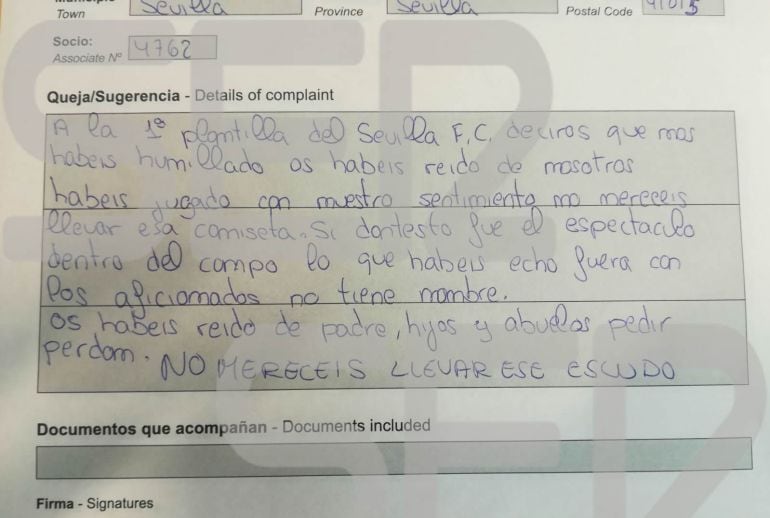 Municipio
Town Sevilla Province Sevilla Postal Code 41015
Socio:
Associate Nº 4762
Queja/Sugerencia - Details of complaint
A la 1ª plantilla del Sevilla F.C. deciros que nos
habeis humillado os habeis reido de nosotros
habeis jugado con nuestro sentimiento no mereceis
llevar esa camiseta. Si dantesto fue el espectaculo
dentro del campo lo que habeis echo fuera con
los aficionados no tiene nombre.
os habeis reido de padre, hijos y abuelos pedir
perdon. NO MERECEIS LLEVAR ESE ESCUDO
Documentos que acompañan - Documents included
Firma - Signatures
SER
SER